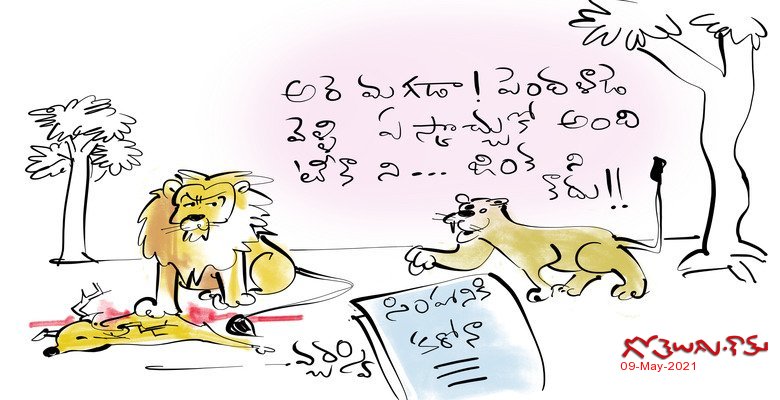 అరె మగడా! పెందళాడె
వెళ్ళి ఏ స్కొచ్చుకో అంది
టీకా ని... జింక ని
కాదు!!
సింహానికి
కరోనా
గోతెలుగు.కామ్
09-May-2021